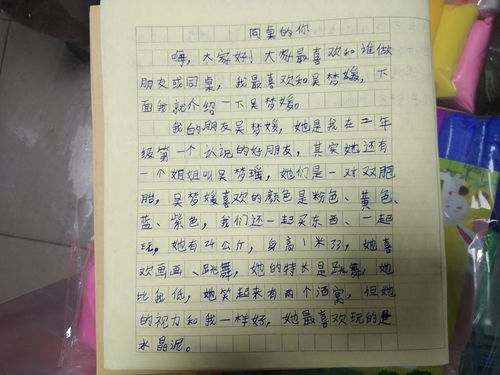 同桌的你
嗨，大家好！大家最喜欢和谁做
朋友或同桌，我最喜欢和吴梦媛，下
面我就介绍一下吴梦媛。
我的朋友吴梦媛，她是我在二年
级第一个认识的好朋友，其实她还有
一个姐姐叫吴梦瑶，她们是一对双胞
胎，吴梦媛喜欢的颜色是粉色、黄色、
蓝、紫色，我们还一起买东西、一起
玩。她有24公斤，身高1米33，她喜
欢画画、跳舞，她的特长是跳舞，她
比我低，她笑起来有两个酒窝，但她
的视力和我一样好，她最喜欢玩的是
水晶泥。